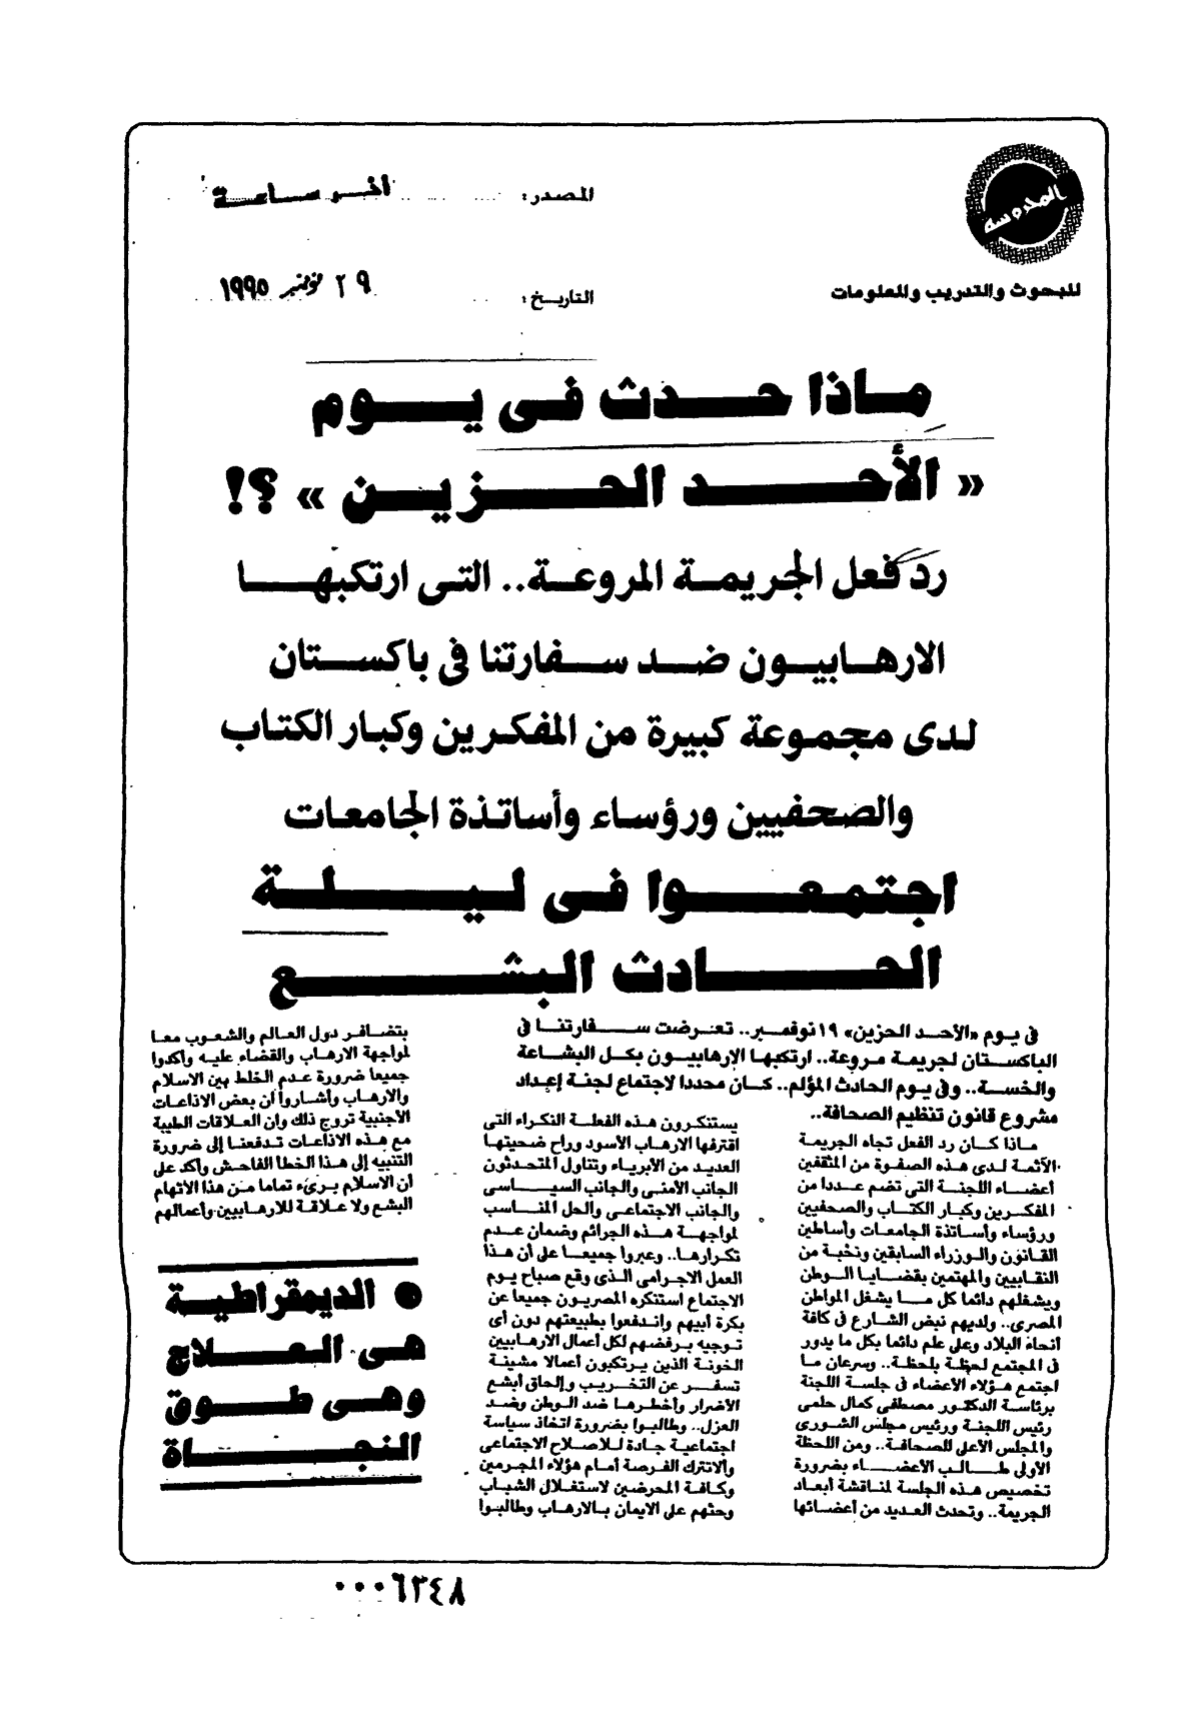 المحروسة
للبحوث والتدريب والمعلومات
المصدر: أخر ساعة
التاريخ: ٢٩ نوفمبر ١٩٩٥
ماذا حدث فى يوم
« الأحد الحزين » ؟!
رد فعل الجريمة المروعة.. التى ارتكبها
الارهابيون ضد سفارتنا فى باكستان
لدى مجموعة كبيرة من المفكرين وكبار الكتاب
والصحفيين ورؤساء وأساتذة الجامعات
اجتمعوا فى ليلة
الحادث البشع
فى يوم «الأحد الحزين» ١٩ نوفمبر.. تعرضت سفارتنا فى
الباكستان لجريمة مروعة.. ارتكبها الإرهابيون بكل البشاعة
والخسة.. وفى يوم الحادث المؤلم.. كان محددا لاجتماع لجنة إعداد
مشروع قانون تنظيم الصحافة..
ماذا كان رد الفعل تجاه الجريمة
الآثمة لدى هذه الصفوة من المثقفين
أعضاء اللجنة التى تضم عددا من
المفكرين وكبار الكتاب والصحفيين
ورؤساء وأساتذة الجامعات وأساطين
القانون والوزراء السابقين ونخبة من
النقابيين والمهتمين بقضايا الوطن
ويشغلهم دائما كل ما يشغل المواطن
المصرى.. ولديهم نبض الشارع فى كافة
أنحاء البلاد وعلى علم دائما بكل ما يدور
فى المجتمع لحظة بلحظة.. وسرعان ما
اجتمع هؤلاء الأعضاء فى جلسة اللجنة
برئاسة الدكتور مصطفى كمال حلمى
رئيس اللجنة ورئيس مجلس الشورى
والمجلس الأعلى للصحافة.. ومن اللحظة
الأولى طالب الأعضاء بضرورة
تخصيص هذه الجلسة لمناقشة أبعاد
الجريمة.. وتحدث العديد من أعضائها
يستنكرون هذه الفعلة النكراء التى
اقترفها الارهاب الأسود وراح ضحيتها
العديد من الأبرياء وتناول المتحدثون
الجانب الأمنى والجانب السياسى
والجانب الاجتماعى والحل المناسب
لمواجهة هذه الجرائم وضمان عدم
تكرارها.. وعبروا جميعا على أن هذا
العمل الاجرامى الذى وقع صباح يوم
الاجتماع استنكره المصريون جميعا عن
بكرة أبيهم واندفعوا بطبيعتهم دون أى
توجيه برفضهم لكل أعمال الارهابيين
الخونة الذين يرتكبون أعمالا مشينة
تسفر عن التخريب وإلحاق أبشع
الأضرار وأخطرها ضد الوطن وضد
العزل.. وطالبوا بضرورة اتخاذ سياسة
اجتماعية جادة للاصلاح الاجتماعى
وألا نترك الفرصة أمام هؤلاء المجرمين
وكافة المحرضين لاستغلال الشباب
وحثهم على الايمان بالارهاب وطالبوا
بتضافر دول العالم والشعوب معا
لمواجهة الارهاب والقضاء عليه وأكدوا
جميعا ضرورة عدم الخلط بين الاسلام
والارهاب وأشاروا أن بعض الاذاعات
الأجنبية تروج ذلك وان العلاقات الطيبة
مع هذه الاذاعات تدفعنا إلى ضرورة
التنبيه إلى هذا الخطا الفاحش وأكد على
أن الاسلام برىء تماما من هذا الاتهام
البشع ولا علاقة للارهابيين وأعمالهم
● الديمقراطية
هى العلاج
وهى طوق
النجاة
٠٠٠٦٣٤٨